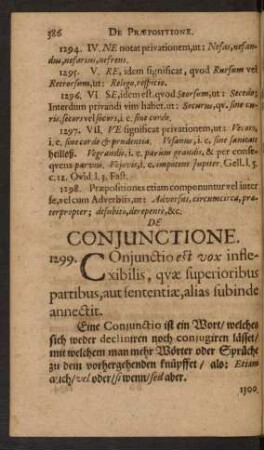 386 DE PRÆPOSITIONE.
1294. IV. NE notat privationem, ut: Nefas, nefan-
dus, nefarius, nefrens.
1295. V. RE, idem significat, qvod Rursum vel
Retrorsum, ut: Relego, respicio.
1296. VI SE, idem est, qvod Seorsum, ut: Secedo;
Interdum privandi vim habet, ut: Securus, qv. sine cu-
ris, secors vel socors, i. e. sine corde.
1297. VII. VE significat privationem, ut: Vecors,
i. e. sine corde & prudentia. Vesanus, i. e. sine sanitate
heilloß. Vegrandis, i. e. parum grandis, & per conse-
qvens parvus. Vejovis, i. e. impotens Jupiter. Gell. l. 5.
c. 12. Ovid. l. 3. Fast.
1298. Præpositiones etiam componuntur vel inter
se, vel cum Adverbiis, ut: Adversus, circumcirca, præ-
terpropter; desubito, derepente, &c.
DE
CONJUNCTIONE.
1299. COnjunctio est vox infle-
xibilis, qvæ superioribus
partibus, aut sententiæ, alias subinde
annectit.
Eine Conjunctio ist ein Wort/ welches
sich weder decliniren noch conjugiren lässet/
mit welchem man mehr Wörter oder Sprüche
zu dem vorhergehenden knüpffet / als: Etiam
auch/ vel oder/ si wenn/ sed aber.
1300.